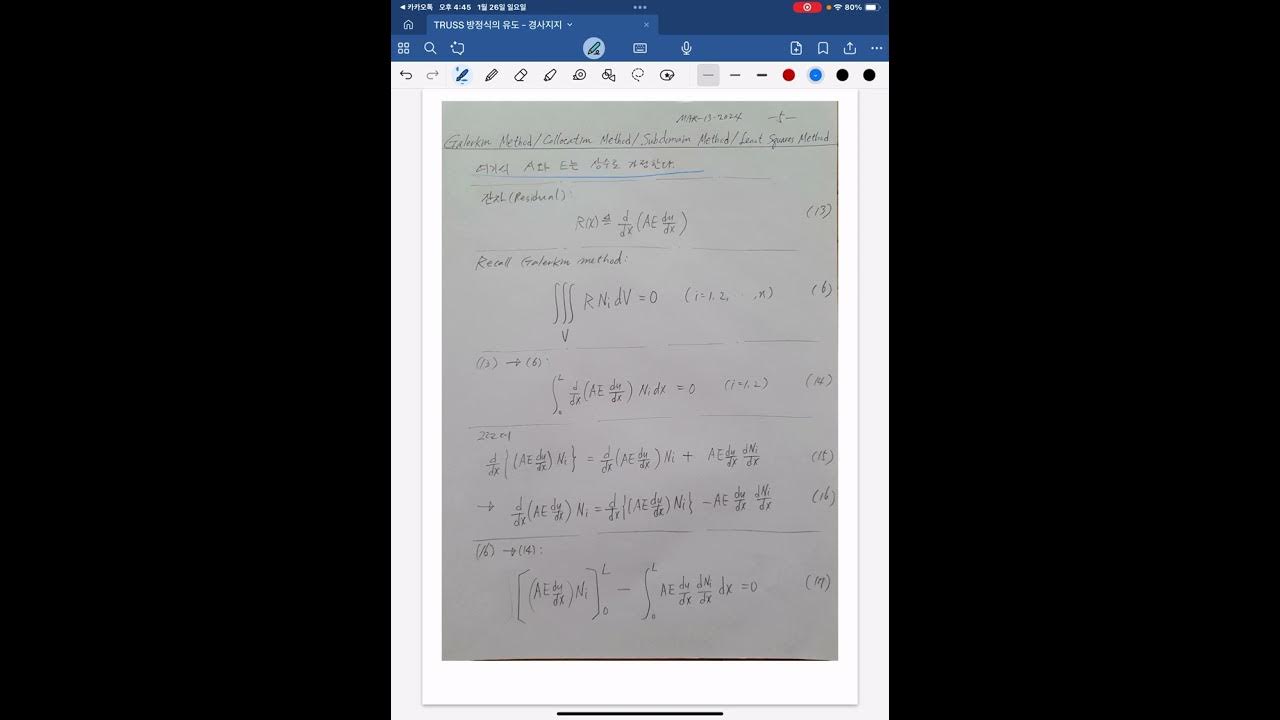 카카오톡 오후 4:45 1월 26일 일요일 80%
TRUSS 방정식의 유도 - 경사지지
MAR-13-2024 -5-
Galerkin Method/Collocation Method/Subdomain Method/Least Squares Method
여기서 A와 E는 상수로 가정한다.
잔차(Residual):
R(x) ≜ d/dx (AE du/dx) (13)
Recall Galerkin method:
∭_V R N_i dV = 0 (i=1, 2, ..., n) (6)
(13) → (6):
∫_0^L d/dx (AE du/dx) N_i dx = 0 (i=1, 2) (14)
그런데
d/dx {(AE du/dx) N_i} = d/dx (AE du/dx) N_i + AE du/dx dN_i/dx (15)
→ d/dx (AE du/dx) N_i = d/dx {(AE du/dx) N_i} - AE du/dx dN_i/dx (16)
(16) → (14):
[(AE du/dx) N_i]_0^L - ∫_0^L AE du/dx dN_i/dx dx = 0 (17)